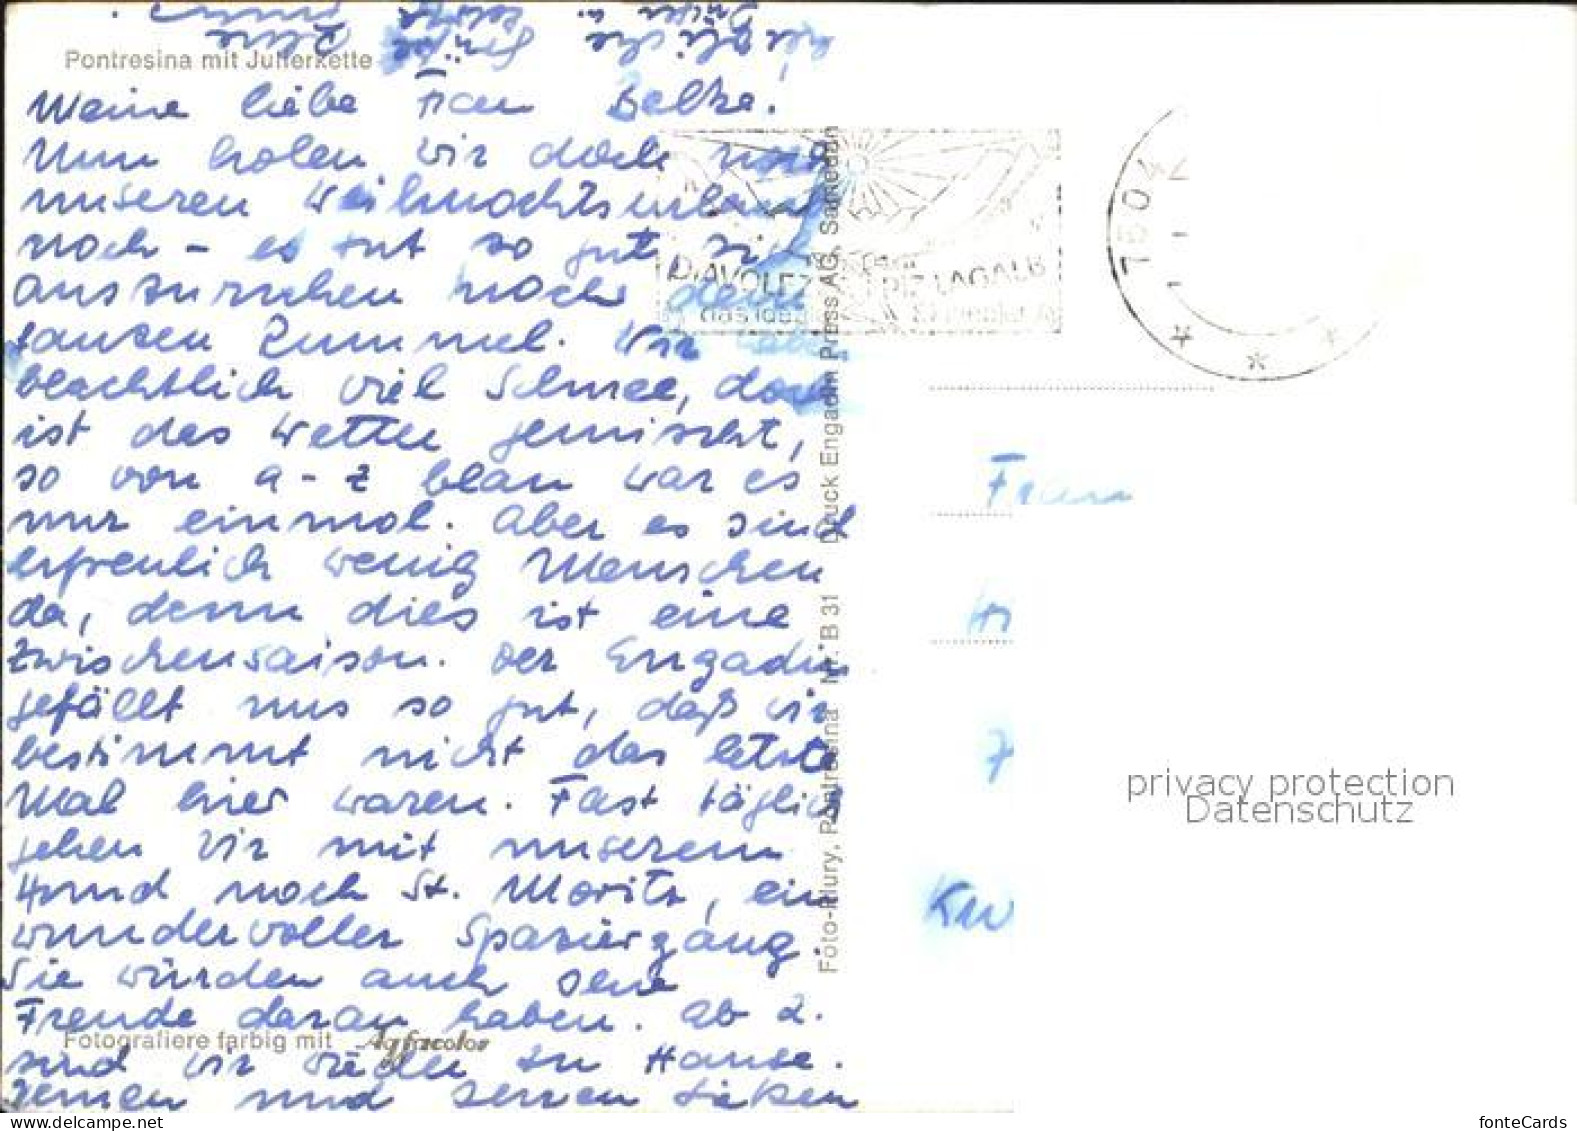 Pontresina mit Julierkette
Meine liebe Frau
Nun holen wir doch noch
unseren Weihnachtsurlaub
nach - es tut so gut sich
auszuruhen nach dem
ganzen Rummel. Wir haben
beachtlich viel Schnee, doch
ist das Wetter gemischt,
so von a-z blau war es
nur einmal. Aber es sind
erfreulich wenig Menschen
da, denn dies ist eine
Zwischensaison. Der Engadin
gefällt uns so gut, daß wir
bestimmt nicht das letzte
Mal hier waren. Fast täglich
gehen wir mit unserem
Hund nach St. Moritz, ein
wundervoller Spaziergang.
Sie würden auch Ihre
Freude daran haben. Ab 2.
sind wir wieder zu Hause.
Ihnen und Ihren Lieben
herzliche Grüße Ihre
Fotografiere farbig mit Agfacolor
Foto-Flury, Pontresina Nr. B 31 Druck Engadin Press AG, Samedan
DIAVOLEZZA PIZ LAGALB
das ideale
7504
Frau
privacy protection
Datenschutz
fonteCards